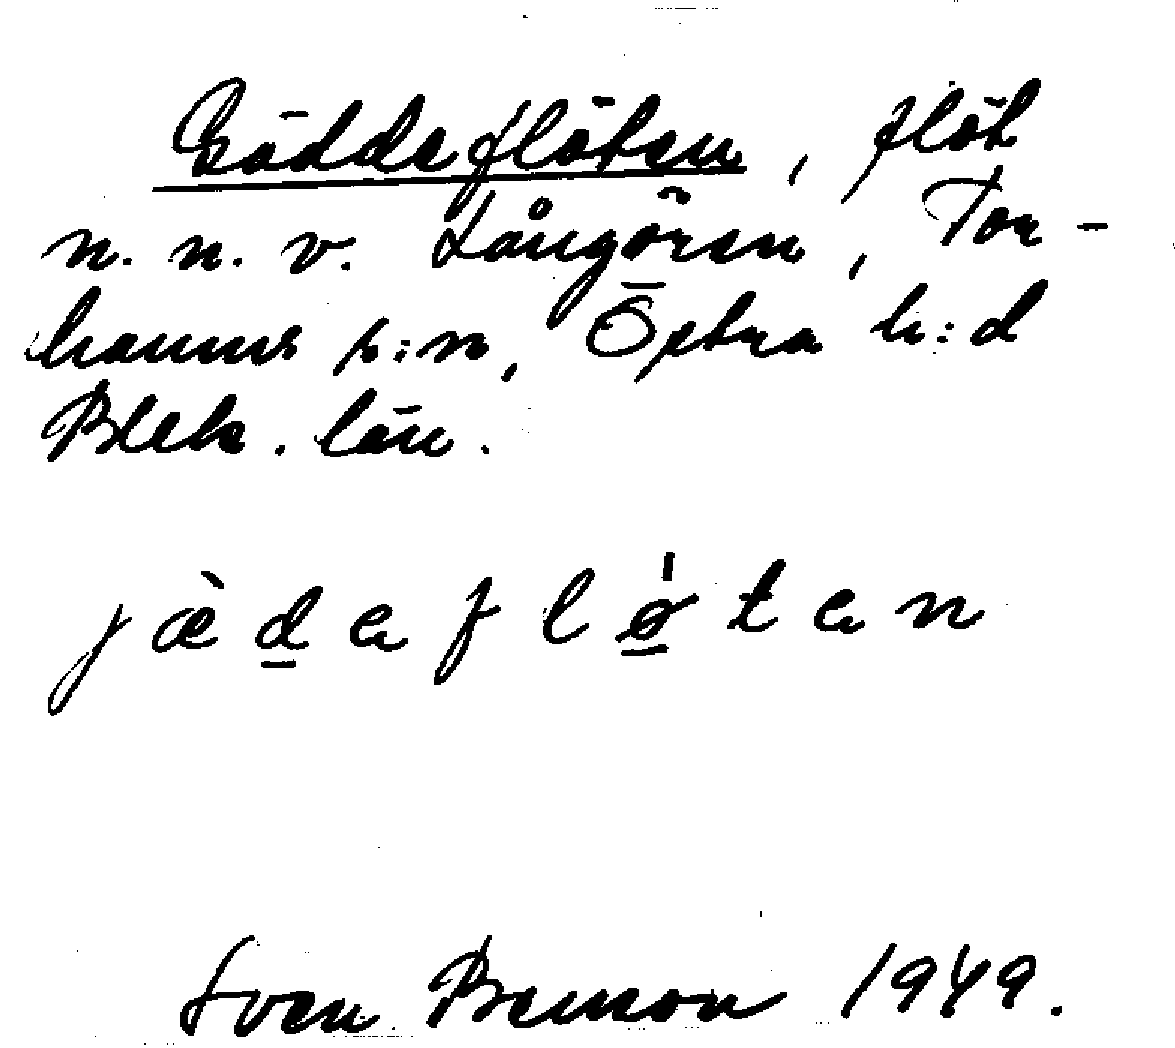 Gäddeflöten, flöt
n. n. v. Långören, Tor-
hamns s:n, Östra h:d
Blek. län.
jæ̀d̲eflǿ̲ten
Sven Benson 1949.